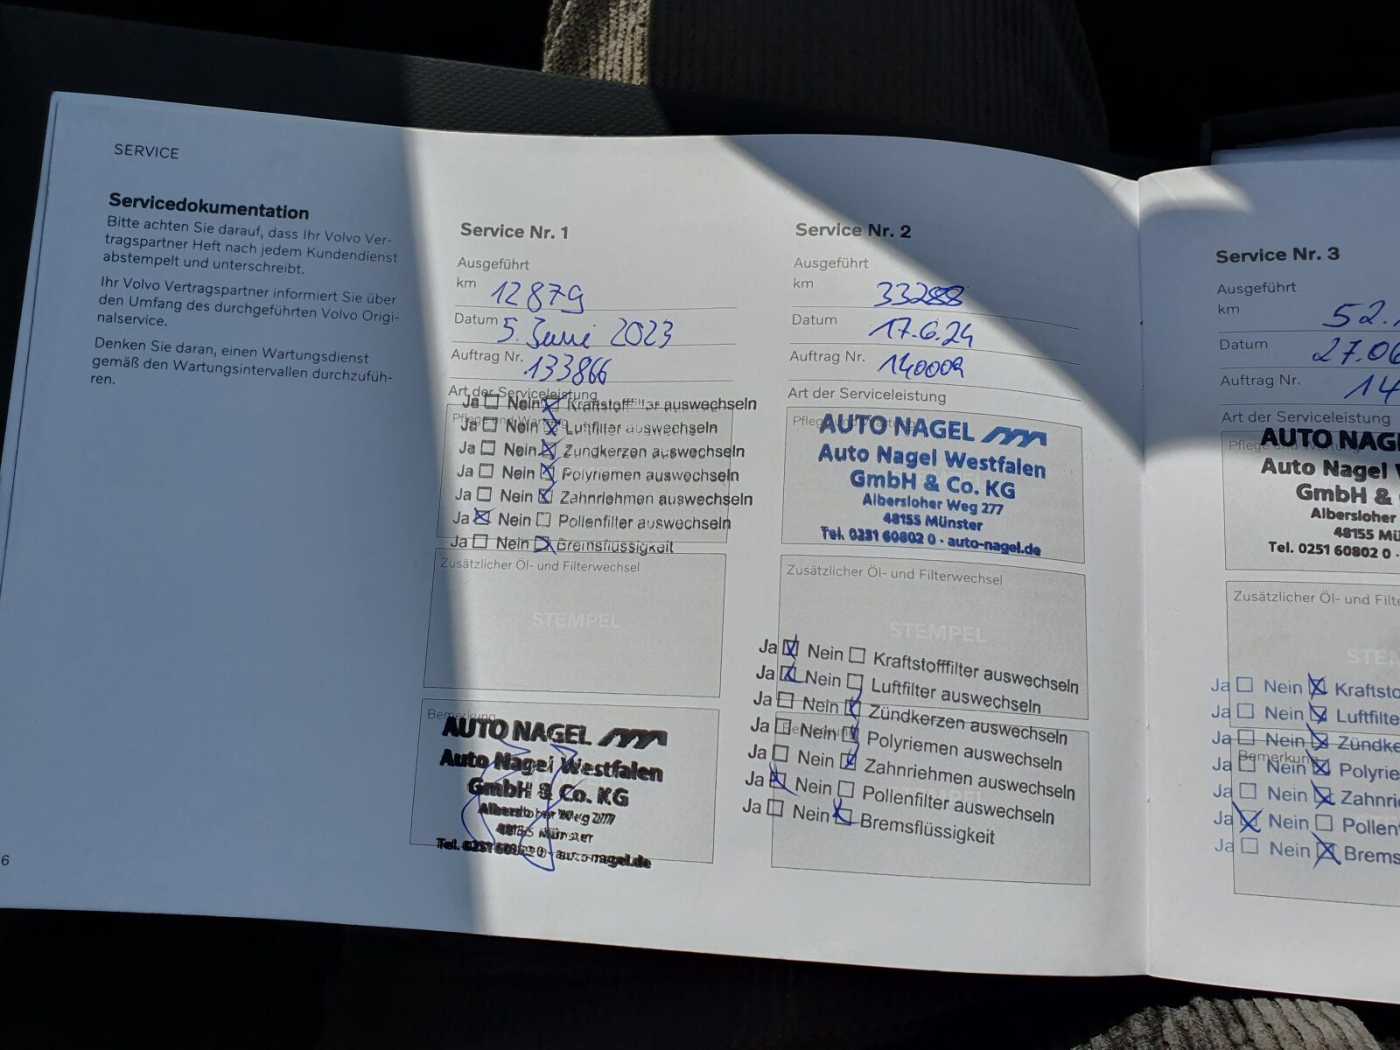 SERVICE
Servicedokumentation
Bitte achten Sie darauf, dass Ihr Volvo Ver-
tragspartner Heft nach jedem Kundendienst
abstempelt und unterschreibt.
Ihr Volvo Vertragspartner informiert Sie über
den Umfang des durchgeführten Volvo Origi-
nalservice.
Denken Sie daran, einen Wartungsdienst
gemäß den Wartungsintervallen durchzufüh-
ren.
6
Service Nr. 1
Ausgeführt
km 12879
Datum 5. Juni 2023
Auftrag Nr. 133866
Art der Serviceleistung
Ja Nein Kraftstofffilter auswechseln
Ja Nein Luftfilter auswechseln
Ja Nein Zündkerzen auswechseln
Ja Nein Polyriemen auswechseln
Ja Nein Zahnriehmen auswechseln
Ja Nein Pollenfilter auswechseln
Ja Nein Bremsflüssigkeit
Zusätzlicher Öl- und Filterwechsel
STEMPEL
Bemerkung
AUTO NAGEL
Auto Nagel Westfalen
GmbH & Co. KG
Albersloher Weg 277
48155 Münster
Tel. 0251 60802 0 · auto-nagel.de
Service Nr. 2
Ausgeführt
km 33288
Datum 17.6.24
Auftrag Nr. 140009
Art der Serviceleistung
AUTO NAGEL
Auto Nagel Westfalen
GmbH & Co. KG
Albersloher Weg 277
48155 Münster
Tel. 0251 60802 0 · auto-nagel.de
Zusätzlicher Öl- und Filterwechsel
STEMPEL
Ja Nein Kraftstofffilter auswechseln
Ja Nein Luftfilter auswechseln
Ja Nein Zündkerzen auswechseln
Ja Nein Polyriemen auswechseln
Ja Nein Zahnriehmen auswechseln
Ja Nein Pollenfilter auswechseln
Ja Nein Bremsflüssigkeit
Service Nr. 3
Ausgeführt
km 52.
Datum 27.06
Auftrag Nr. 14
Art der Serviceleistung
AUTO NAG
Auto Nagel
GmbH &
Albersloher
48155 Mü
Tel. 0251 60802 0 ·
Zusätzlicher Öl- und Filte
STE
Ja Nein Kraftsto
Ja Nein Luftfilte
Ja Nein Zündke
Bemerkung
Ja Nein Polyrie
Ja Nein Zahnri
Ja Nein Pollen
Ja Nein Brems